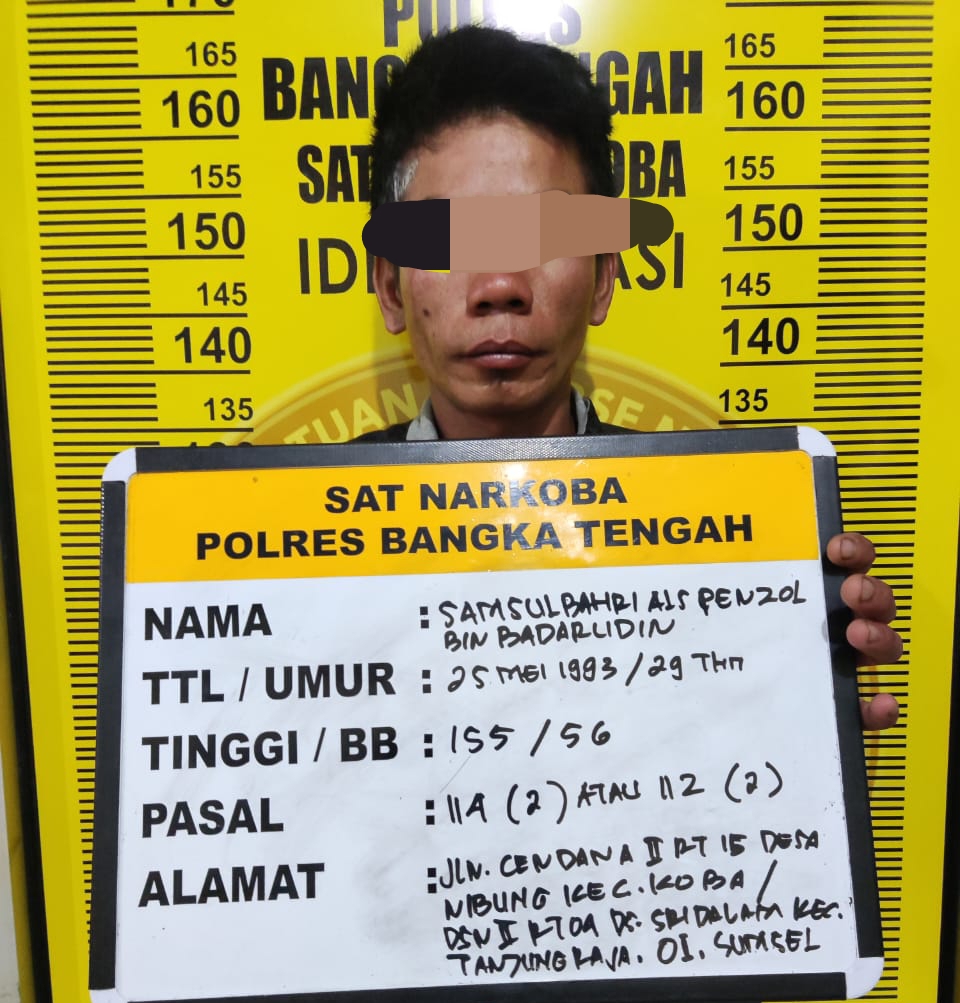 170
165
160
155
150
145
140
135
165
160
155
150
145
140
135
POLRES
BANG GAH
SAT OBA
IDE ASI
TUAN SE N
SAT NARKOBA
POLRES BANGKA TENGAH
NAMA : SAMSULBAHRI ALS PENZOL
BIN BADARUDIN
TTL / UMUR : 25 MEI 1993 / 29 THN
TINGGI / BB : 155 / 56
PASAL : 114 (2) ATAU 112 (2)
ALAMAT : JLN. CENDANA II RT 15 DESA
NIBUNG KEC. KOBA /
DSN II RT 04 DS. SRI DALAM KEC.
TANJUNG RAJA. OI. SUMSEL